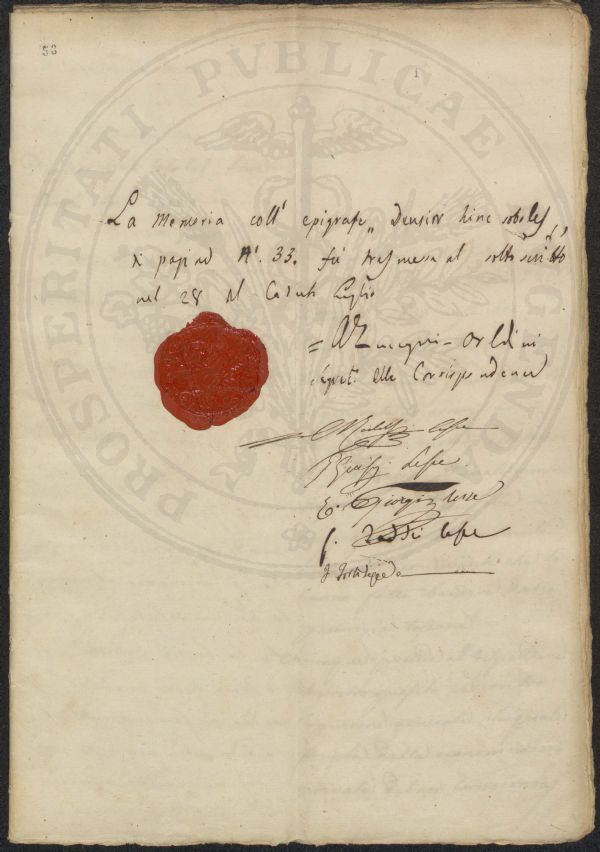 58
1
PROSPERITATI PVBLICAE AVGENDAE
La Memoria coll' epigrafe „ Densior hinc soboles „
di pagine N.º 33. fu trasmessa al sottoscritto
nel 28 del Caduto Luglio
= Zuccagni-Orlandini
Segret. delle Corrispondenze
lesse
lesse
E. Giorgi lesse
lesse